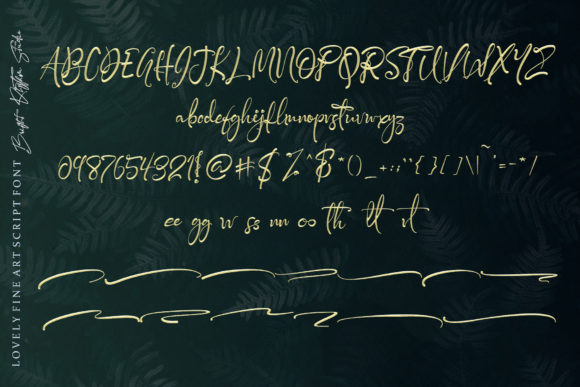 ABCDEFGHIJKLMNOPQRSTUVWXYZ
abcdefghijklmnopqrstuvwxyz
0987654321!@#$%^&*()_+:;“{}[]\|~'=-*/
ee gg ss nn oo th tt
LOVELY FINE ART SCRIPT FONT
Studio